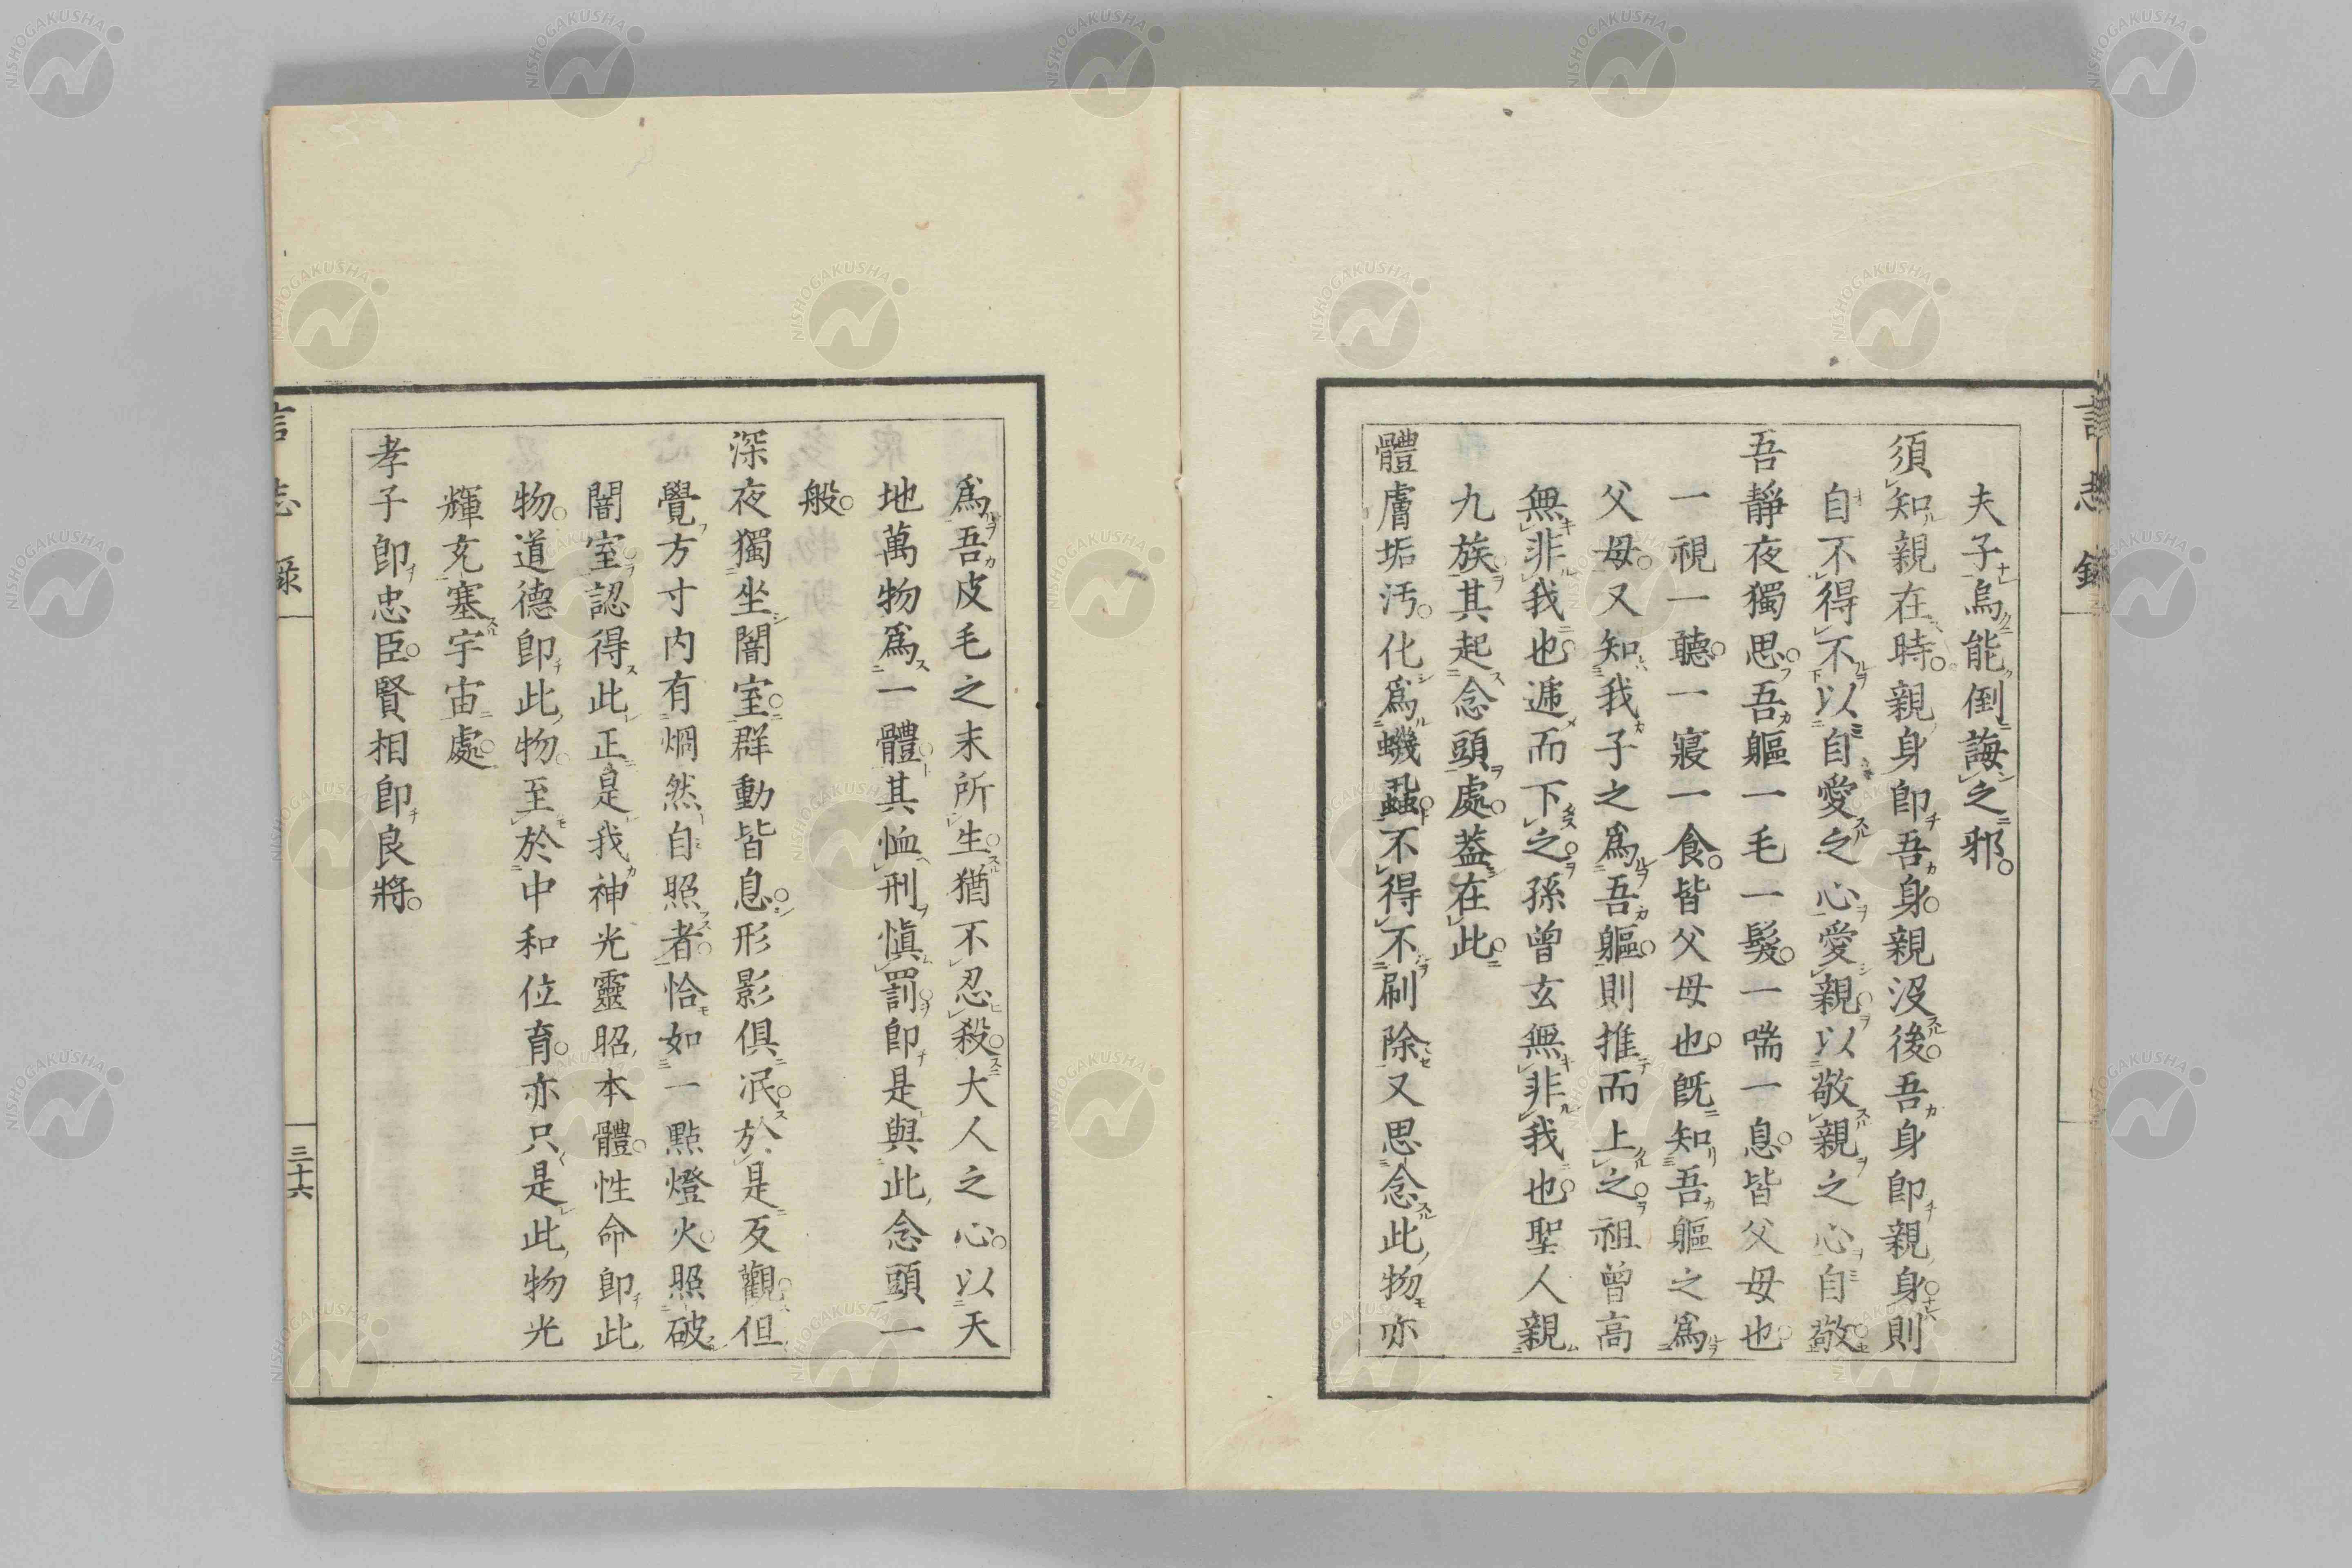 夫子烏能倒誨之邪
須知親在時親身卽吾身親沒後吾身卽親身則
自不得不以自愛之心愛親以敬親之心自敬
吾靜夜獨思吾軀一毛一髮一喘一息皆父母也
一視一聽一寢一食皆父母也旣知吾軀之爲
父母又知我子之爲吾軀則推而上之祖曾高
無非我也遞而下之孫曾玄無非我也聖人親
九族其起念頭處蓋在此
體膚垢汚化爲蟣蝨不得不刷除又思念此物亦
爲吾皮毛之末所生猶不忍殺大人之心以天
地萬物爲一體其恤刑愼罰卽是與此念頭一
般
深夜獨坐闇室群動皆息形影俱泯於是反觀但
覺方寸内有烱然自照者恰如一點燈火照破
闇室認得此正是我神光靈昭本體性命卽此
物道德卽此物至於中和位育亦只是此物光
輝充塞宇宙處
孝子卽忠臣賢相卽良將
言志錄
三十六
NISHOGAKUSHA